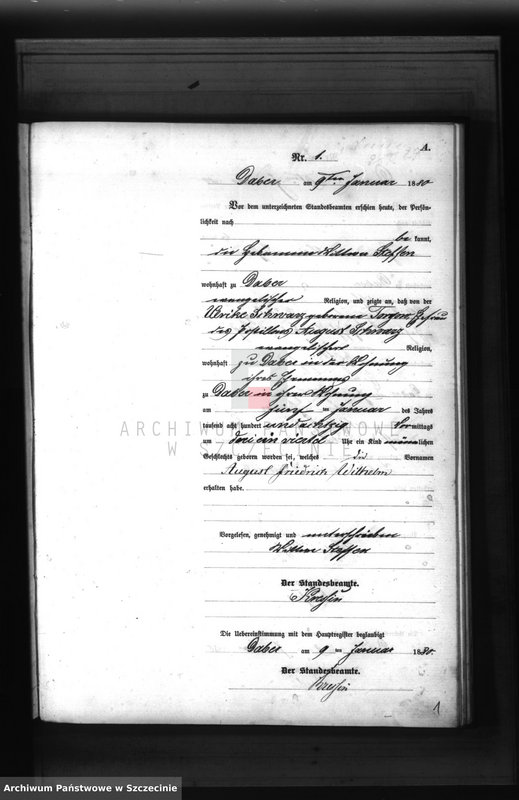 A.
Nr. 1.
Daber am 9ten Januar 1880
Vor dem unterzeichneten Standesbeamten erschien heute, der Persön-
lichkeit nach
bekannt,
die Hebamme Wittwe Steffen
wohnhaft zu Daber
evangelischer Religion, und zeigte an, daß von der
Ulrike Schwarz geborene Ehefrau
des August Schwarz
evangelischer Religion,
wohnhaft zu Daber in der Wohnung
ihres Ehemannes
zu Daber in ihrer Wohnung
am fünf ten Januar des Jahres
tausend acht hundert und achtzig Vormittags
um drei ein viertel Uhr ein Kind männlichen
Geschlechts geboren worden sei, welches die Vornamen
August Friedrich Wilhelm
erhalten habe.
Vorgelesen, genehmigt und unterschrieben
Wittwe Steffen
Der Standesbeamte.
Die Uebereinstimmung mit dem Hauptregister beglaubigt
Daber am 9 ten Januar 1880
Der Standesbeamte.
1
ARCHIWUM PAŃSTWOWE
W SZCZECINIE
Archiwum Państwowe w Szczecinie